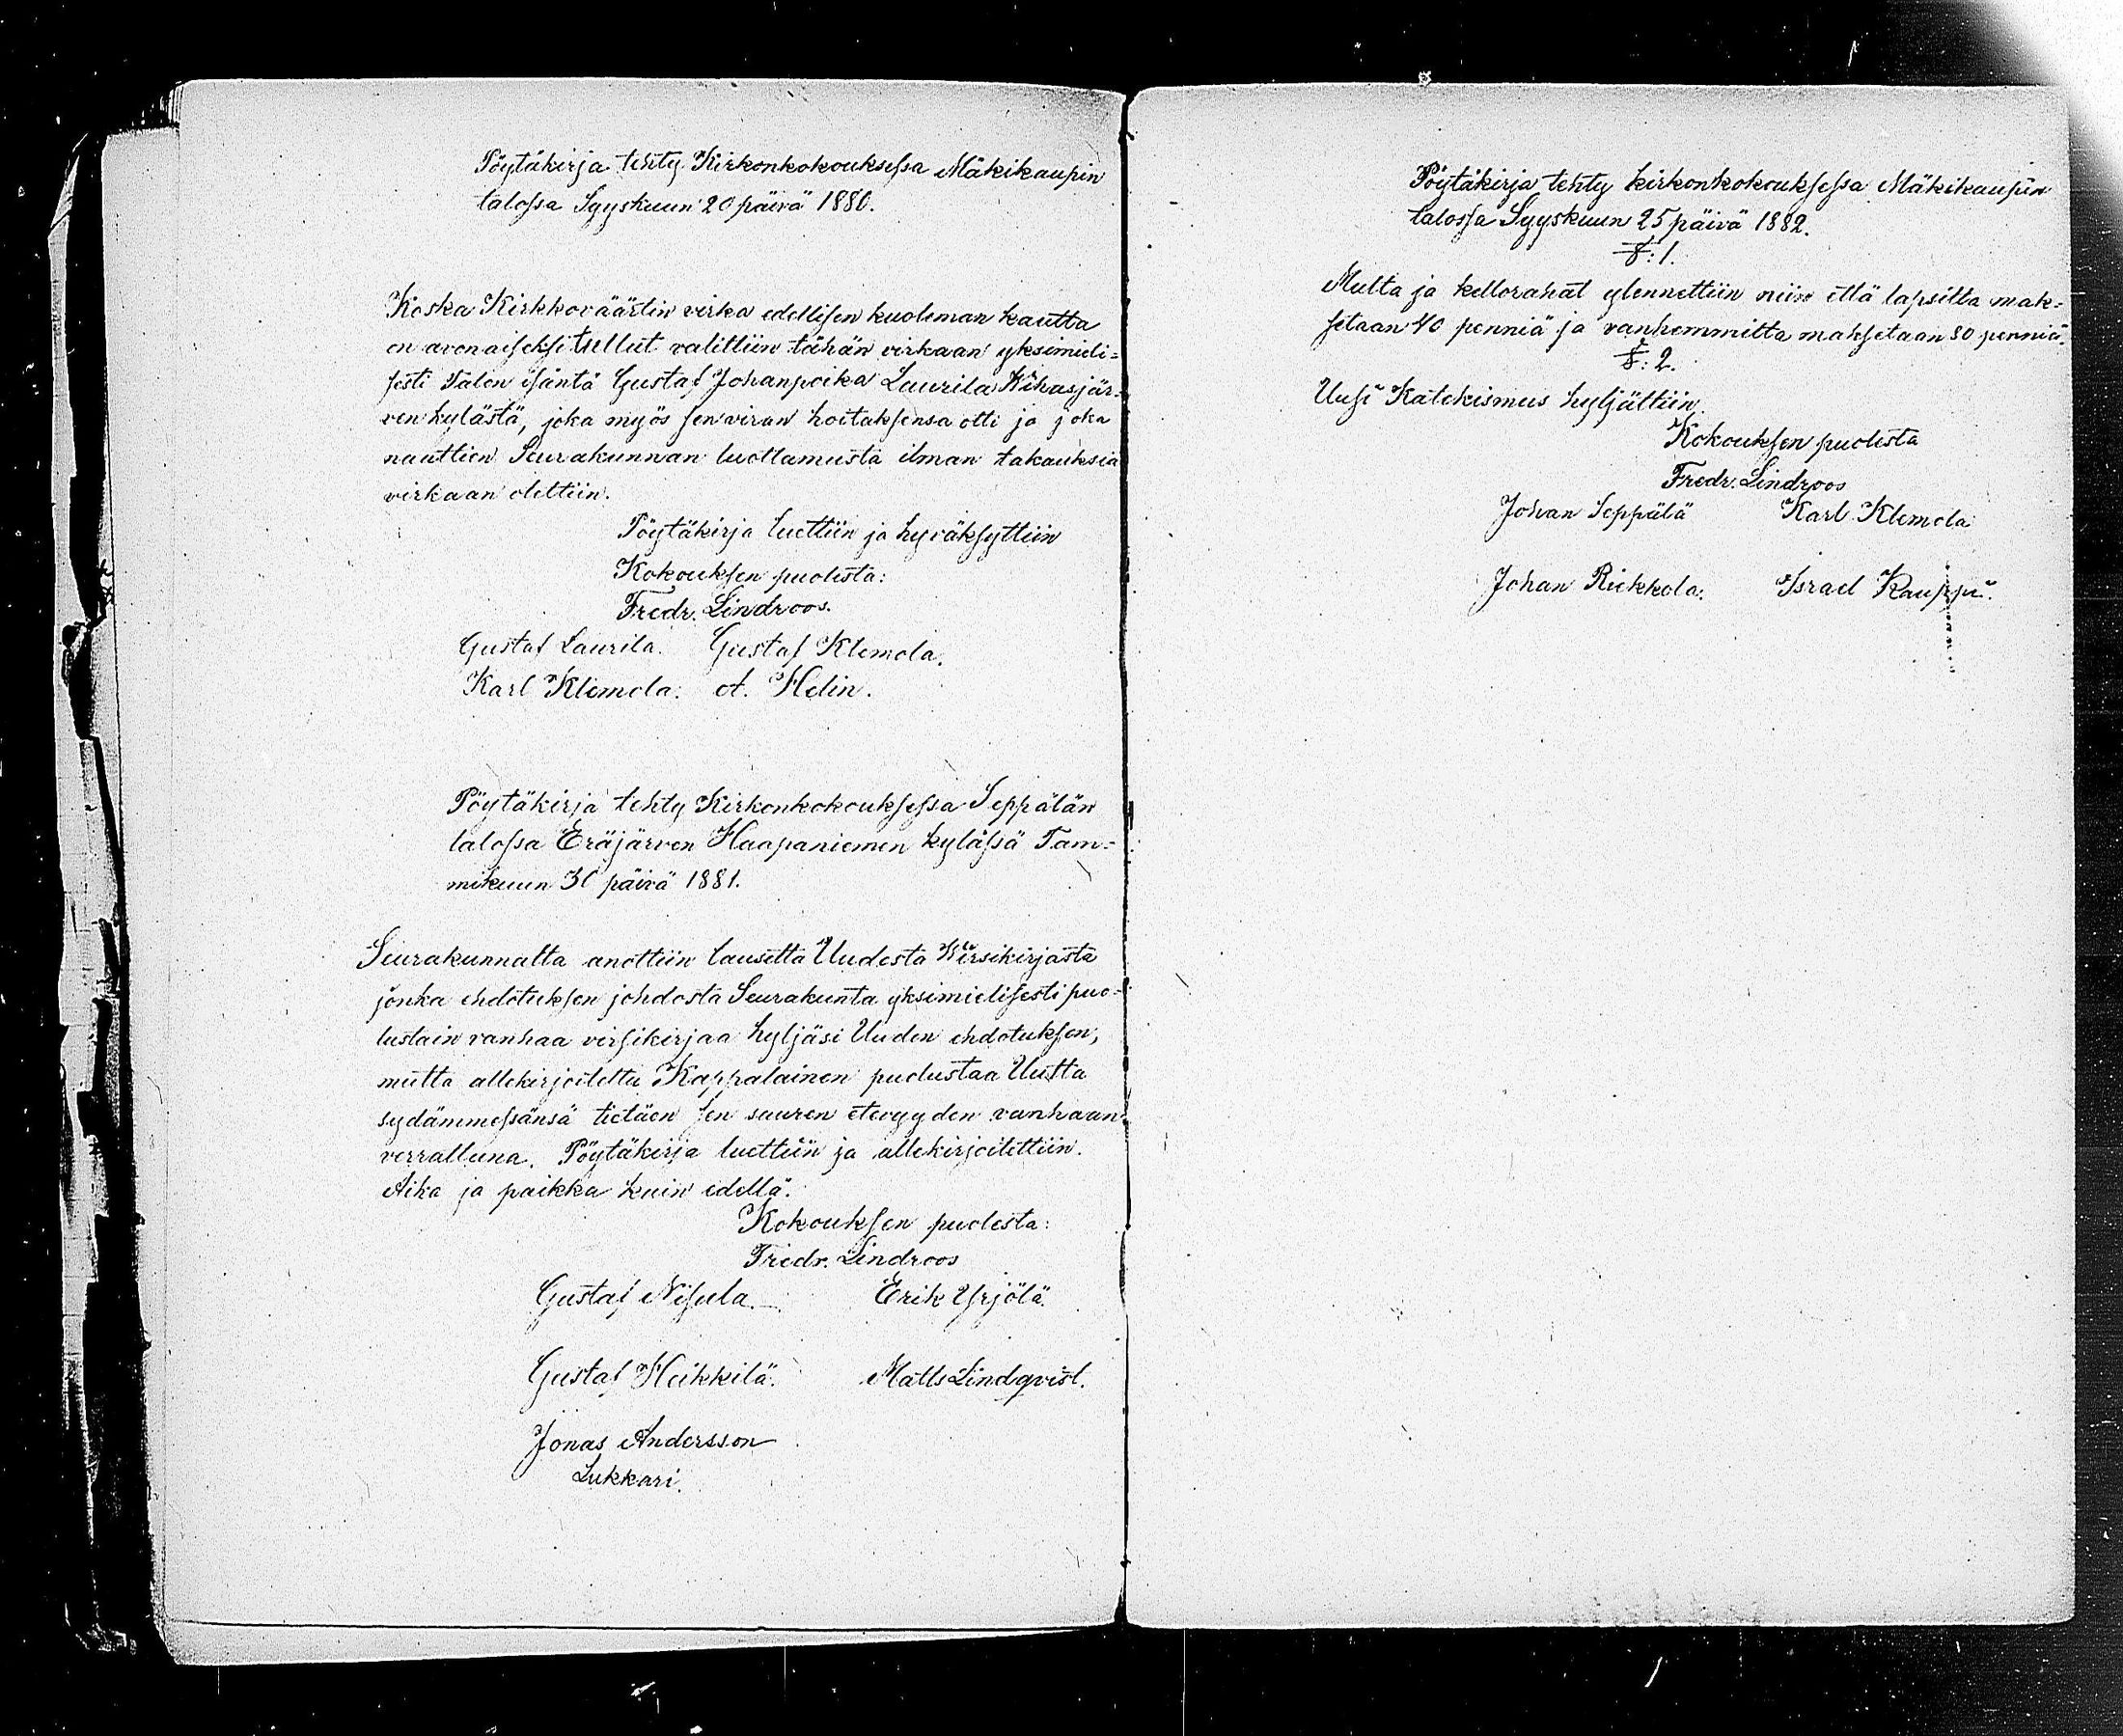 Pöytäkirja tehty Kirkonkokouksessa Mäkikaupin
talossa Syyskuun 20 päivä 1880.
Koska Kirkkoväärtin virka edellisen kuoleman kautta
on avonaiseksi tullut valittiin tähän virkaan yksimieli=
sesti Talon isäntä Gustaf Johanpoika Laurila Wihasjär=
ven kylästä, joka myös sen viran hoitaksensa otti ja joka
nauttien Seurakunnan luottamusta ilman takauksia
virkaan otettiin.
Pöytäkirja luettiin ja hyväksyttiin
Kokouksen puolesta:
Fredr. Lindroos.
Gustaf Laurila. Gustaf Klemola.
Karl Klemola. A. Helin.
Pöytäkirja tehty Kirkonkokouksessa Seppälän
talossa Eräjärven Haapaniemen kylässä Tam=
mikuun 30 päivä 1881.
Seurakunnalta anottiin lausetta Uudesta Wirsikirjasta
jonka ehdotuksen johdosta Seurakunta yksimielisesti puo=
lustain vanhaa virsikirjaa hyljäsi Uuden ehdotuksen,
mutta allekirjoitettu Kappalainen puolustaa Uutta
sydämmessänsä tietäen sen suuren etevyyden vanhaan
verrattuna. Pöytäkirja luettiin ja allekirjoitettiin.
Aika ja paikka kuin edellä.
Kokouksen puolesta:
Fredr. Lindroos
Gustaf Nisula. Erik Yrjölä.
Gustaf Heikkilä. Matts Lindqvist.
Jonas Andersson
Lukkari.
Pöytäkirja tehty kirkonkokouksessa Mäkikaupin
talossa Syyskuun 25 päivä 1882.
§: 1.
Multa ja kellorahat ylennettiin niin että lapsilta mak=
setaan 40 penniä ja vanhemmilta maksetaan 80 penniä.
§: 2.
Uusi Katekismus hyljättiin.
Kokouksen puolesta
Fredr. Lindroos
Johan Seppälä Karl Klemola
Johan Riekkola. Israel Kauppi.